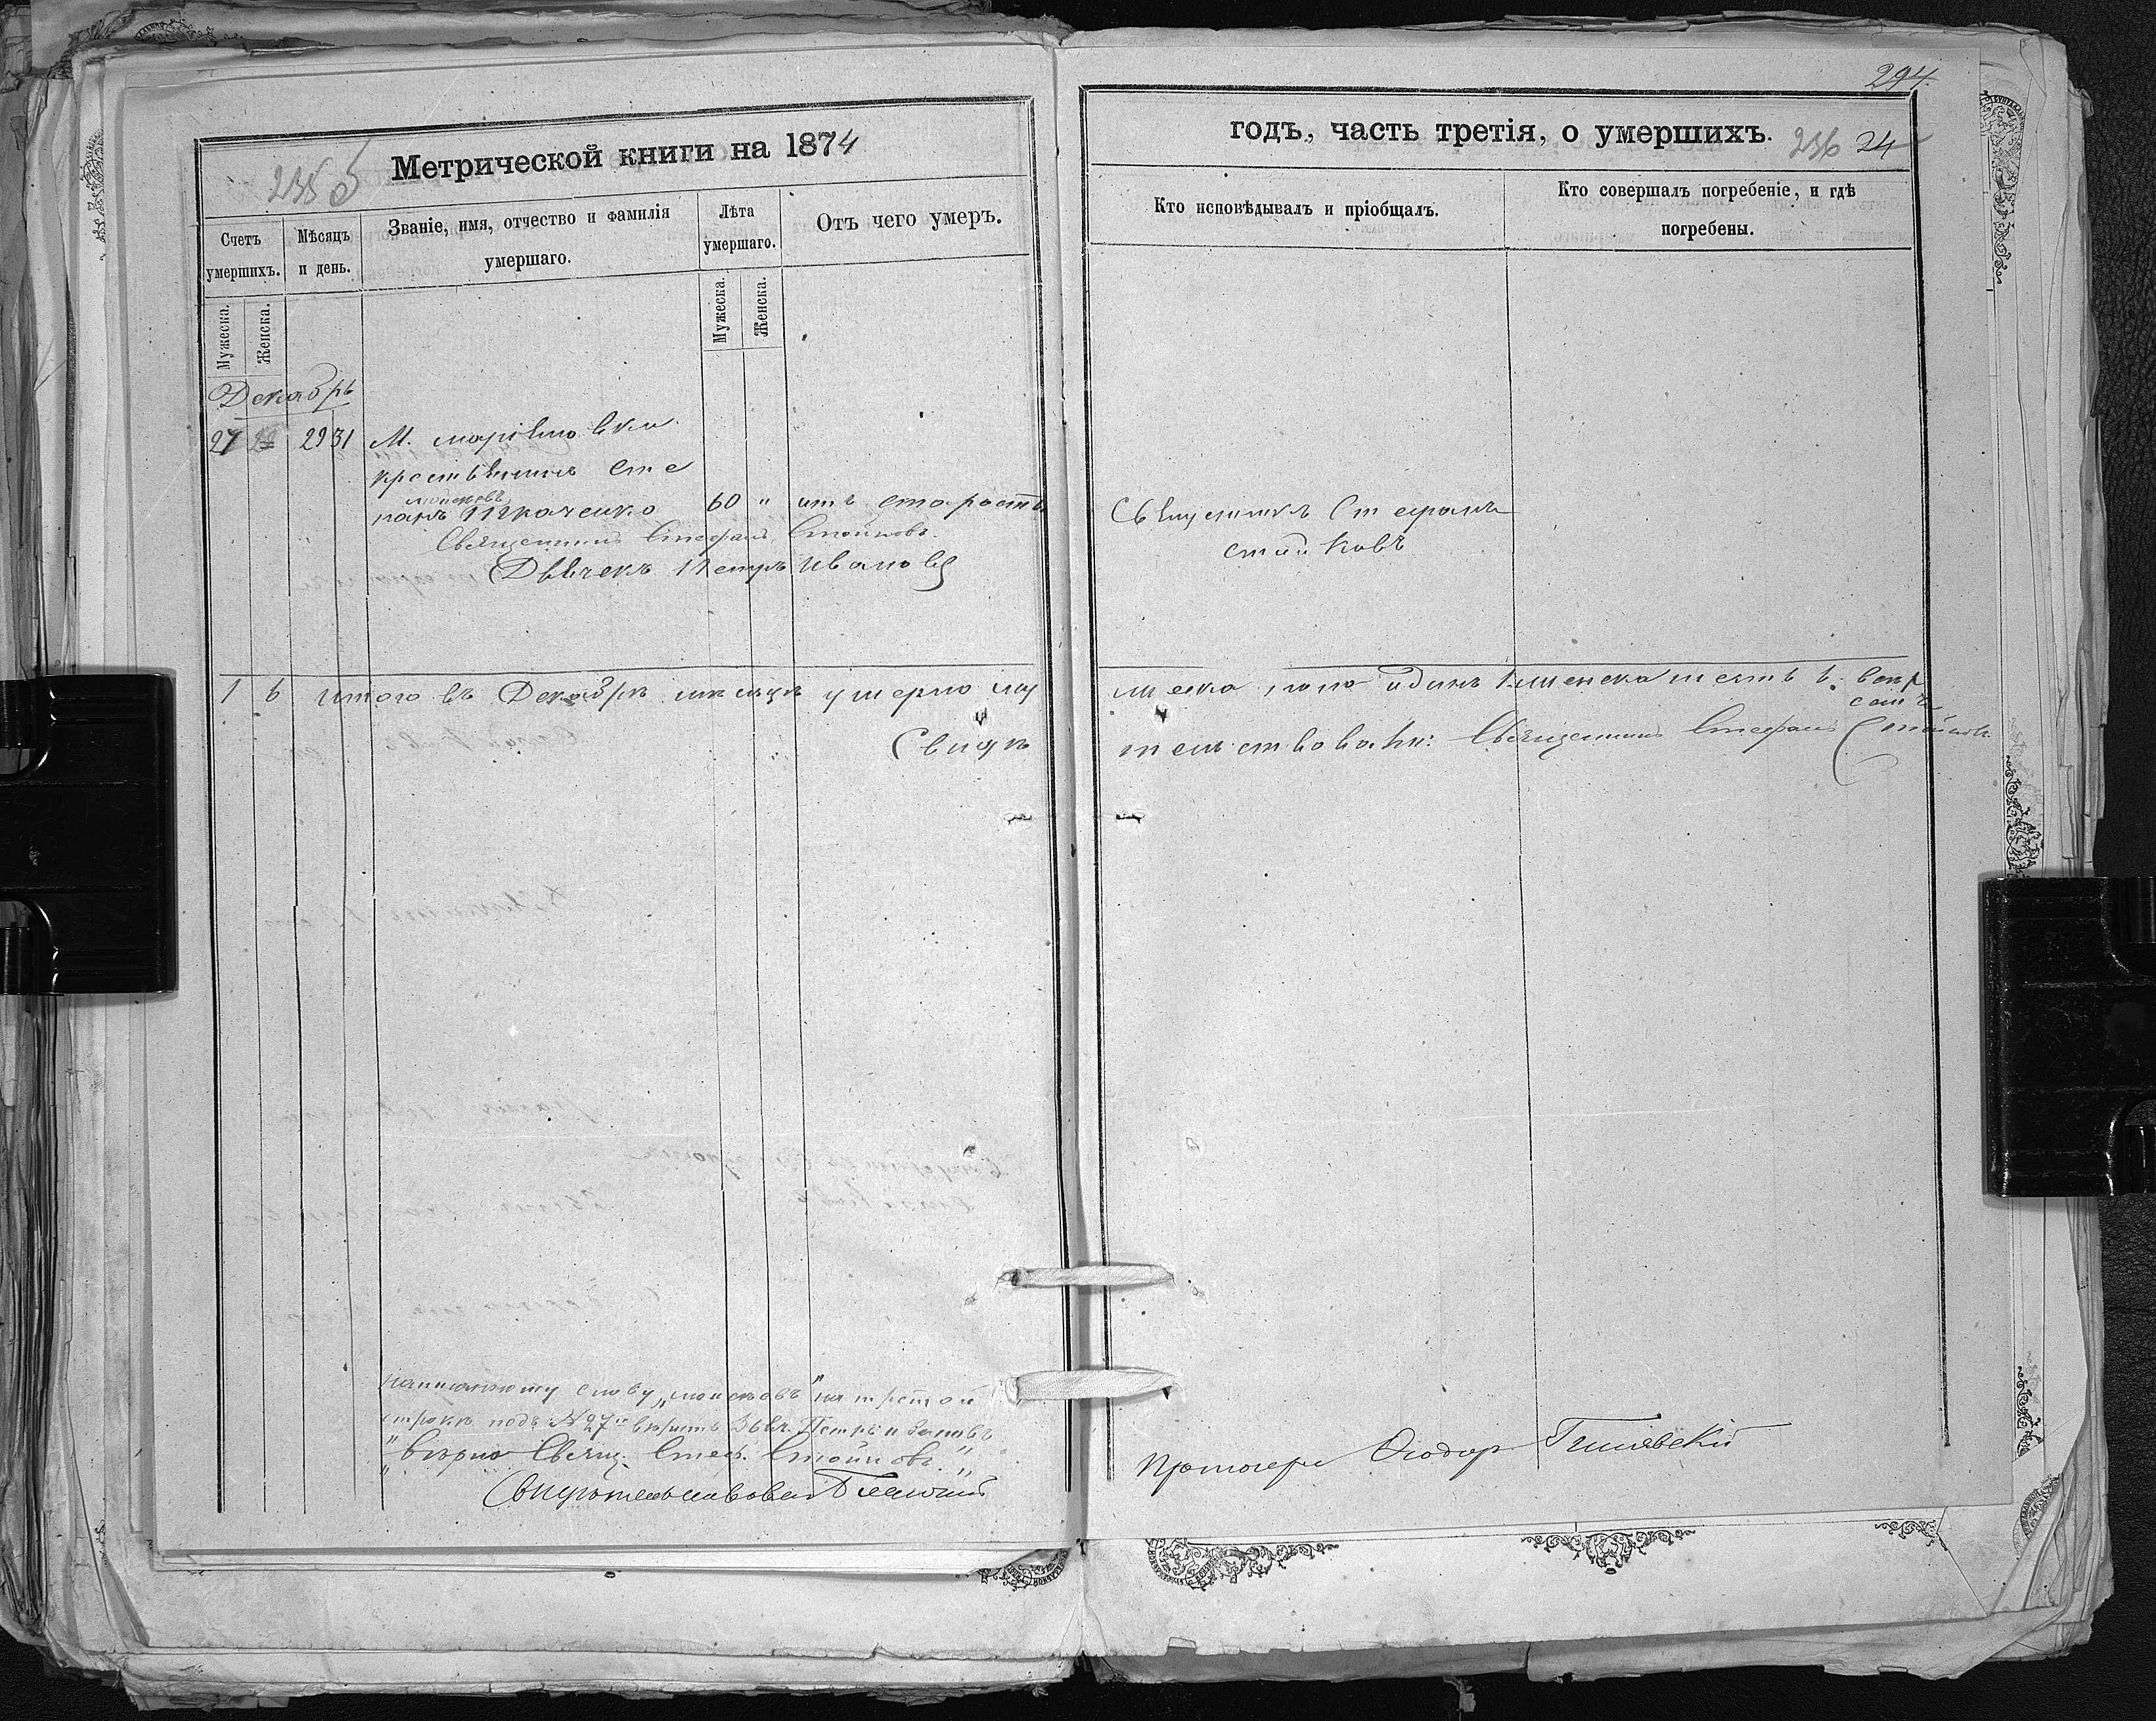 294.
Метрической книги на 1874
годъ, часть третія, о умершихъ.
236 24
235 б
Счетъ умершихъ.
Мѣсяцъ и день.
Званіе, имя, отчество и фамилія умершаго.
Лѣта умершаго.
Отъ чего умеръ.
Кто исповѣдывалъ и пріобщалъ.
Кто совершалъ погребеніе, и гдѣ погребены.
Мужеска.
Женска.
Мужеска.
Женска.
Декабрь
27 29 31 М.
крестьянинъ Сте
панъ Ткаченко 60 " отъ старости
Священникъ Стефанъ
Стойковъ
Священникъ Стефанъ Стойковъ.
Дьячекъ Петръ Ивановъ
1 6 итого въ Декабрѣ мѣсяцѣ умерло му
жеска пола одинъ женска шесть
Свидѣ
тельствовали: Священникъ Стефанъ Стойковъ
слову на третей
строкѣ подъ № 27 вѣрить Петръ Ивановъ
"вѣрно Свящ. Стеф. Стойковъ"
Протоіерей Ѳеодор